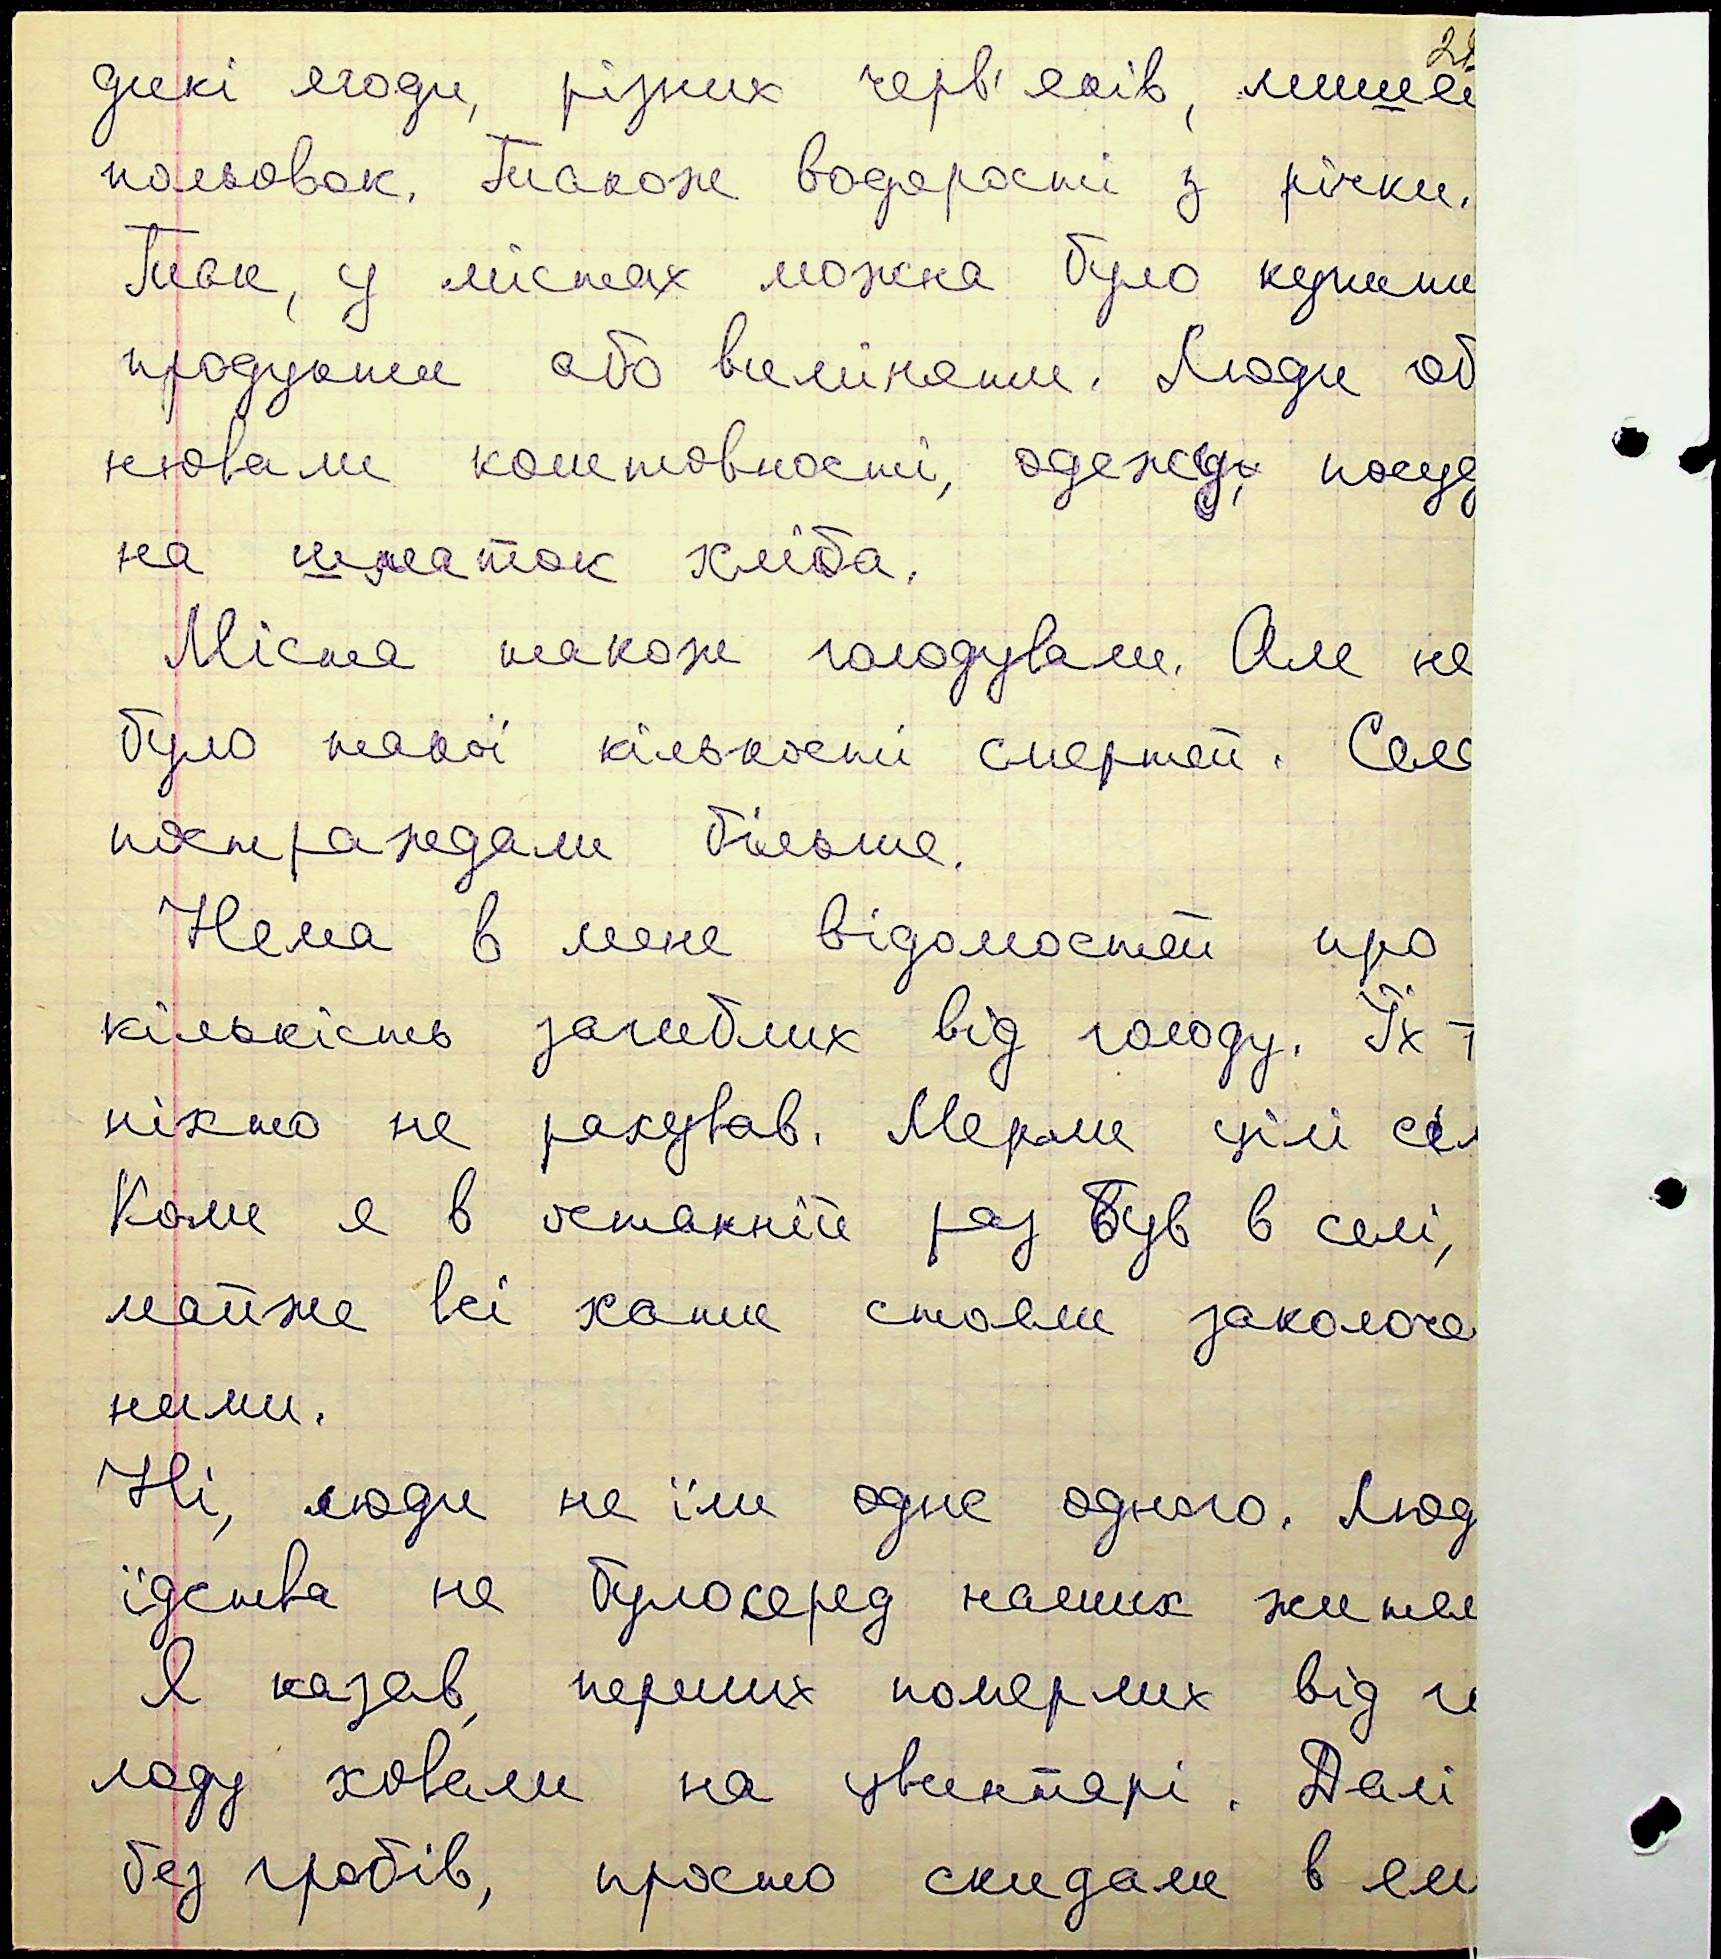 дикі ягоди, різних черв'яків, мишей
польовок. Також водорості з річки.
Так, у містах можна було купити
продукти або виміняти. Люди об
нювали коштовності, одежду, посуд
на шматок хліба.
Міста також голодували. Але не
було такої кількості смертей. Села
постраждали більше.
Нема в мене відомостей про
кількість загиблих від голоду. Їх
ніхто не рахував. Мерли цілі сел
Коли я в останній раз був в селі,
майже всі хати стояли заколоче
ними.
Ні, люди не їли одне одного. Люд
їдства не було серед наших жител
Я казав, перших померлих від го
лоду ховали на цвинтарі. Далі
без гробів, просто скидали в ям